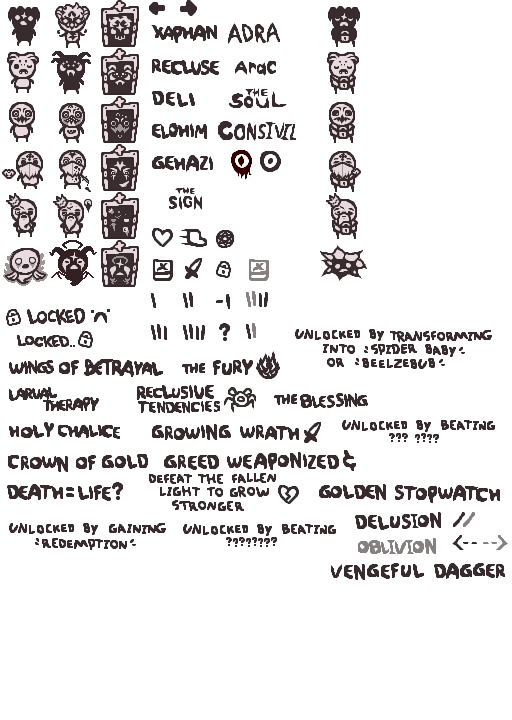 XAPHAN ADRA
RECLUSE Arac
DELI THE SOUL
ELOHIM CONSIVIL
GEHAZI
THE
SIGN
-1
?
LOCKED
LOCKED..
UNLOCKED BY TRANSFORMING
INTO :SPIDER BABY:
OR :BEELZEBUB:
WINGS OF BETRAYAL THE FURY
LARVAL
THERAPY
RECLUSIVE
TENDENCIES
THE BLESSING
HOLY CHALICE GROWING WRATH
UNLOCKED BY BEATING
??? ????
CROWN OF GOLD GREED WEAPONIZED
DEATH=LIFE?
DEFEAT THE FALLEN
LIGHT TO GROW
STRONGER
GOLDEN STOPWATCH
UNLOCKED BY GAINING
:REDEMPTION:
UNLOCKED BY BEATING
????????
DELUSION //
OBLIVION <-- -->
VENGEFUL DAGGER